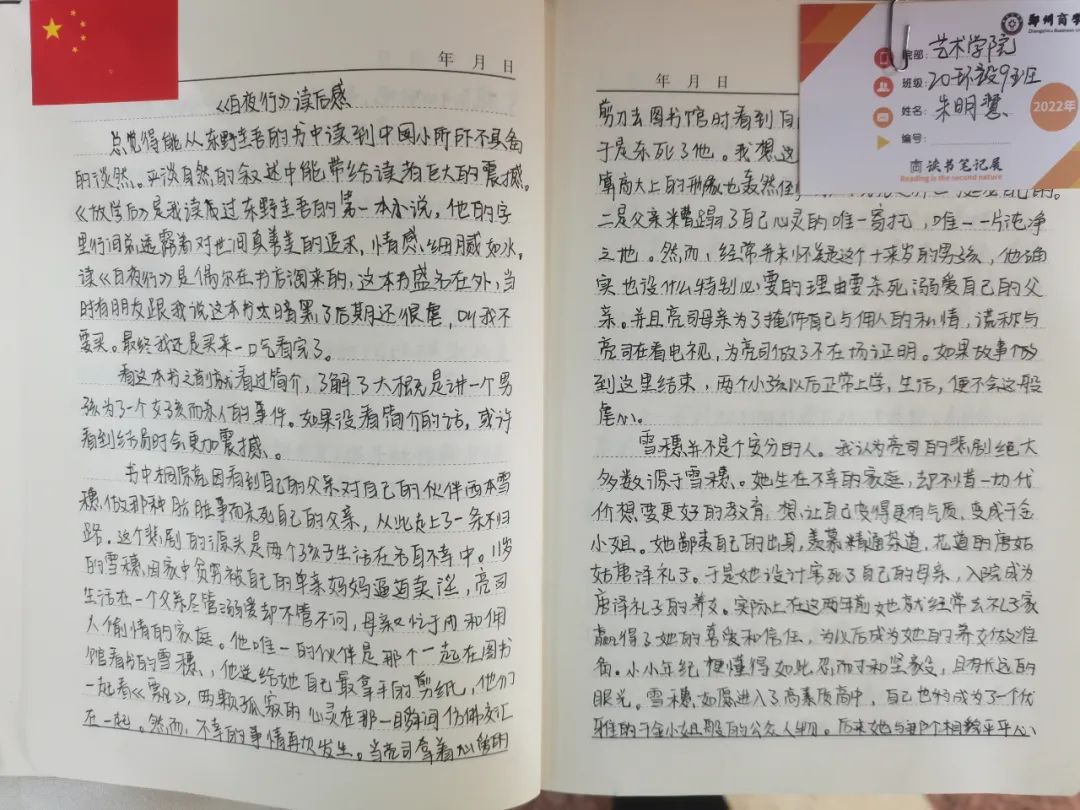 年 月 日
《白夜行》读后感
总觉得能从东野圭吾的书中读到中国小所所不具备
的淡然。平淡自然的叙述中能带给读者巨大的震撼。
《放学后》是我读过东野圭吾的第一本小说，他的字
里行间就透露着对世间真善美的追求，情感细腻如水。
读《白夜行》是偶尔在书店淘来的，这本书盛名在外，当
时有朋友跟我说这本书太暗黑了后期还很虐，叫我不
要买。最终我还是买来一口气看完了。
看这本书之前就看过简介，了解了大概是讲一个男
孩为了一个女孩而杀人的事件。如果没看简介的话，或许
看到结局时会更加震撼。
书中桐原亮因看到自己的父亲对自己的伙伴西本雪
穗做那种肮脏事而杀死自己的父亲，从此走上了一条不归
路。这个悲剧的源头是两个孩子生活在各自不幸中。11岁
的雪穗因家中贫穷被自己的单亲妈妈逼迫卖淫，亮司
生活在一个父亲尽管溺爱却不管不问，母亲只忙于内和佣
人偷情的家庭。他唯一的伙伴是那个一起在图书
馆看书的雪穗，他送给她自己最拿手的剪纸，他们
一起看《飘》，两颗孤寂的心灵在那一瞬间仿佛交汇
在一起。然而，不幸的事情再次发生。当亮司拿着心爱的
年 月 日
剪刀去图书馆时看到自
于是杀死了他。我想这
高大上的形象也轰然
二是父亲糟蹋了自己心灵的唯一寄托，唯一一片纯净
之地。然而，经常并未怀疑这个十来岁的男孩，他确
实也没什么特别必要的理由要杀死溺爱自己的父
亲。并且亮司母亲为了掩饰自己与佣人的私情，谎称与
亮司在看电视，为亮司做了不在场证明。如果故事做
到这里结束，两个小孩以后正常上学，生活，便不会这般
虐心。
雪穗并不是个安分的人。我认为亮司的悲剧绝大
多数源于雪穗。她生在不幸的家庭，却不惜一切代
价想要更好的教育，想让自己变得更有气质，变成千金
小姐。她鄙夷自己的出身，羡慕精通茶道，花道的唐姑
姑唐泽礼子。于是她设计害死了自己的母亲，入院成为
唐泽礼子的养女。实际上在这两年前她就经常去礼子家
赢得了她的喜爱和信任，为以后成为她的养女做准
备。小小年纪便懂得如此忍耐和坚毅，且有长远的
眼光。雪穗如愿进入了高素质高中，自己也构成为了一个优
雅的千金小姐般的公众人物。后来她与那个相貌平平心
郑州商学
Zhengzhou Business Un
院部：艺术学院
班级：20环设9班
姓名：朱明慧
编号：
2022年
商读书笔记展
Reading is the second nature